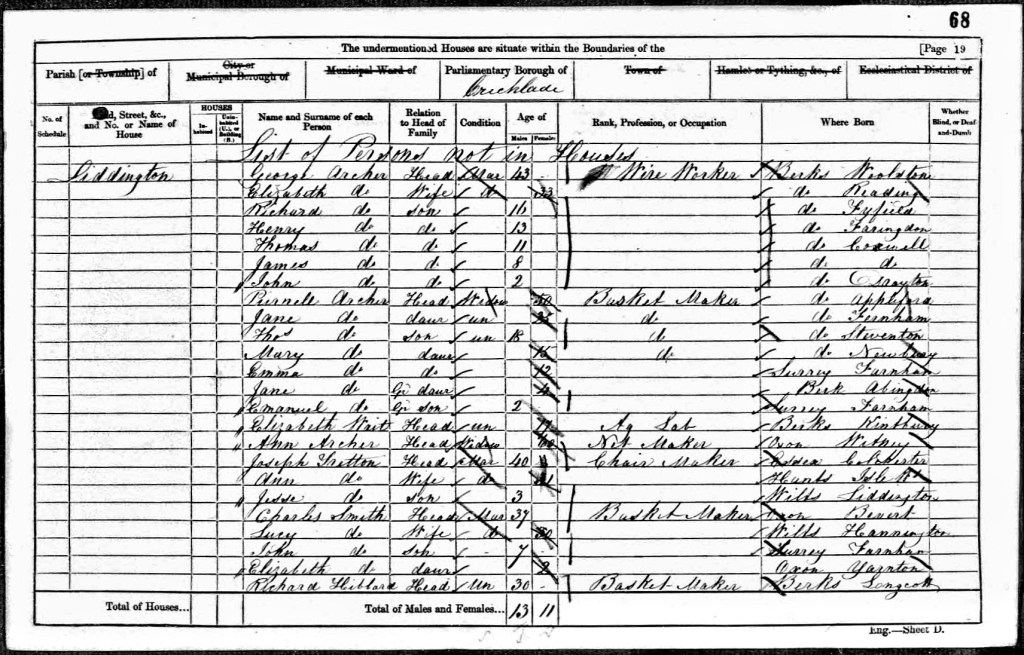 68
The undermentioned Houses are situate within the Boundaries of the [Page 19
Parish [or Township] of City or Municipal Borough of Municipal Ward of Parliamentary Borough of Cricklade Town of Hamlet or Tything, &c., of Ecclesiastical District of
No. of Schedule Street, &c., and No. or Name of House HOUSES Inhabited Uninhabited (U.), or Building (B.) Name and Surname of each Person Relation to Head of Family Condition Age of Males Females Rank, Profession, or Occupation Where Born Whether Blind, or Deaf-and-Dumb
List of Persons not in Houses
Liddington George Archer Head Mar 43 Wire Worker Berks Woolston
Elizabeth do Wife do 33 do Reading
Richard do son 16 do Fyfield
Henry do do 13 do Faringdon
Thomas do do 11 do Coxwell
James do do 8 do do
John do do 2 do
Archer Head Widow 50 Basket Maker do Appleford
Jane do daur un do do Fernham
Thos do son un 18 do do Steventon
Mary do daur do do Newbury
Emma do do 12 Surrey Farnham
Jane do Gr daur 4 Berk Abingdon
Emanuel do Gr son 2 Surrey Farnham
Elizabeth Head un Ag Lab Berks Kintbury
Ann Archer Head Widow 60 Net Maker Oxon Witney
Joseph Head Mar 40 Chair Maker Essex Colchester
Ann do Wife do 41 Hants Isle Wt
Jesse do son 3 Wilts Liddington
Charles Smith Head Mar 37 Basket Maker Oxon
Lucy do Wife do 30 Wilts Hannington
John do son 7 Surrey Farnham
Elizabeth do daur 2 Oxon Yarnton
Richard Hibbard Head Un 30 Basket Maker Berks Longcott
Total of Houses... Total of Males and Females... 13 11
Eng.—Sheet D.